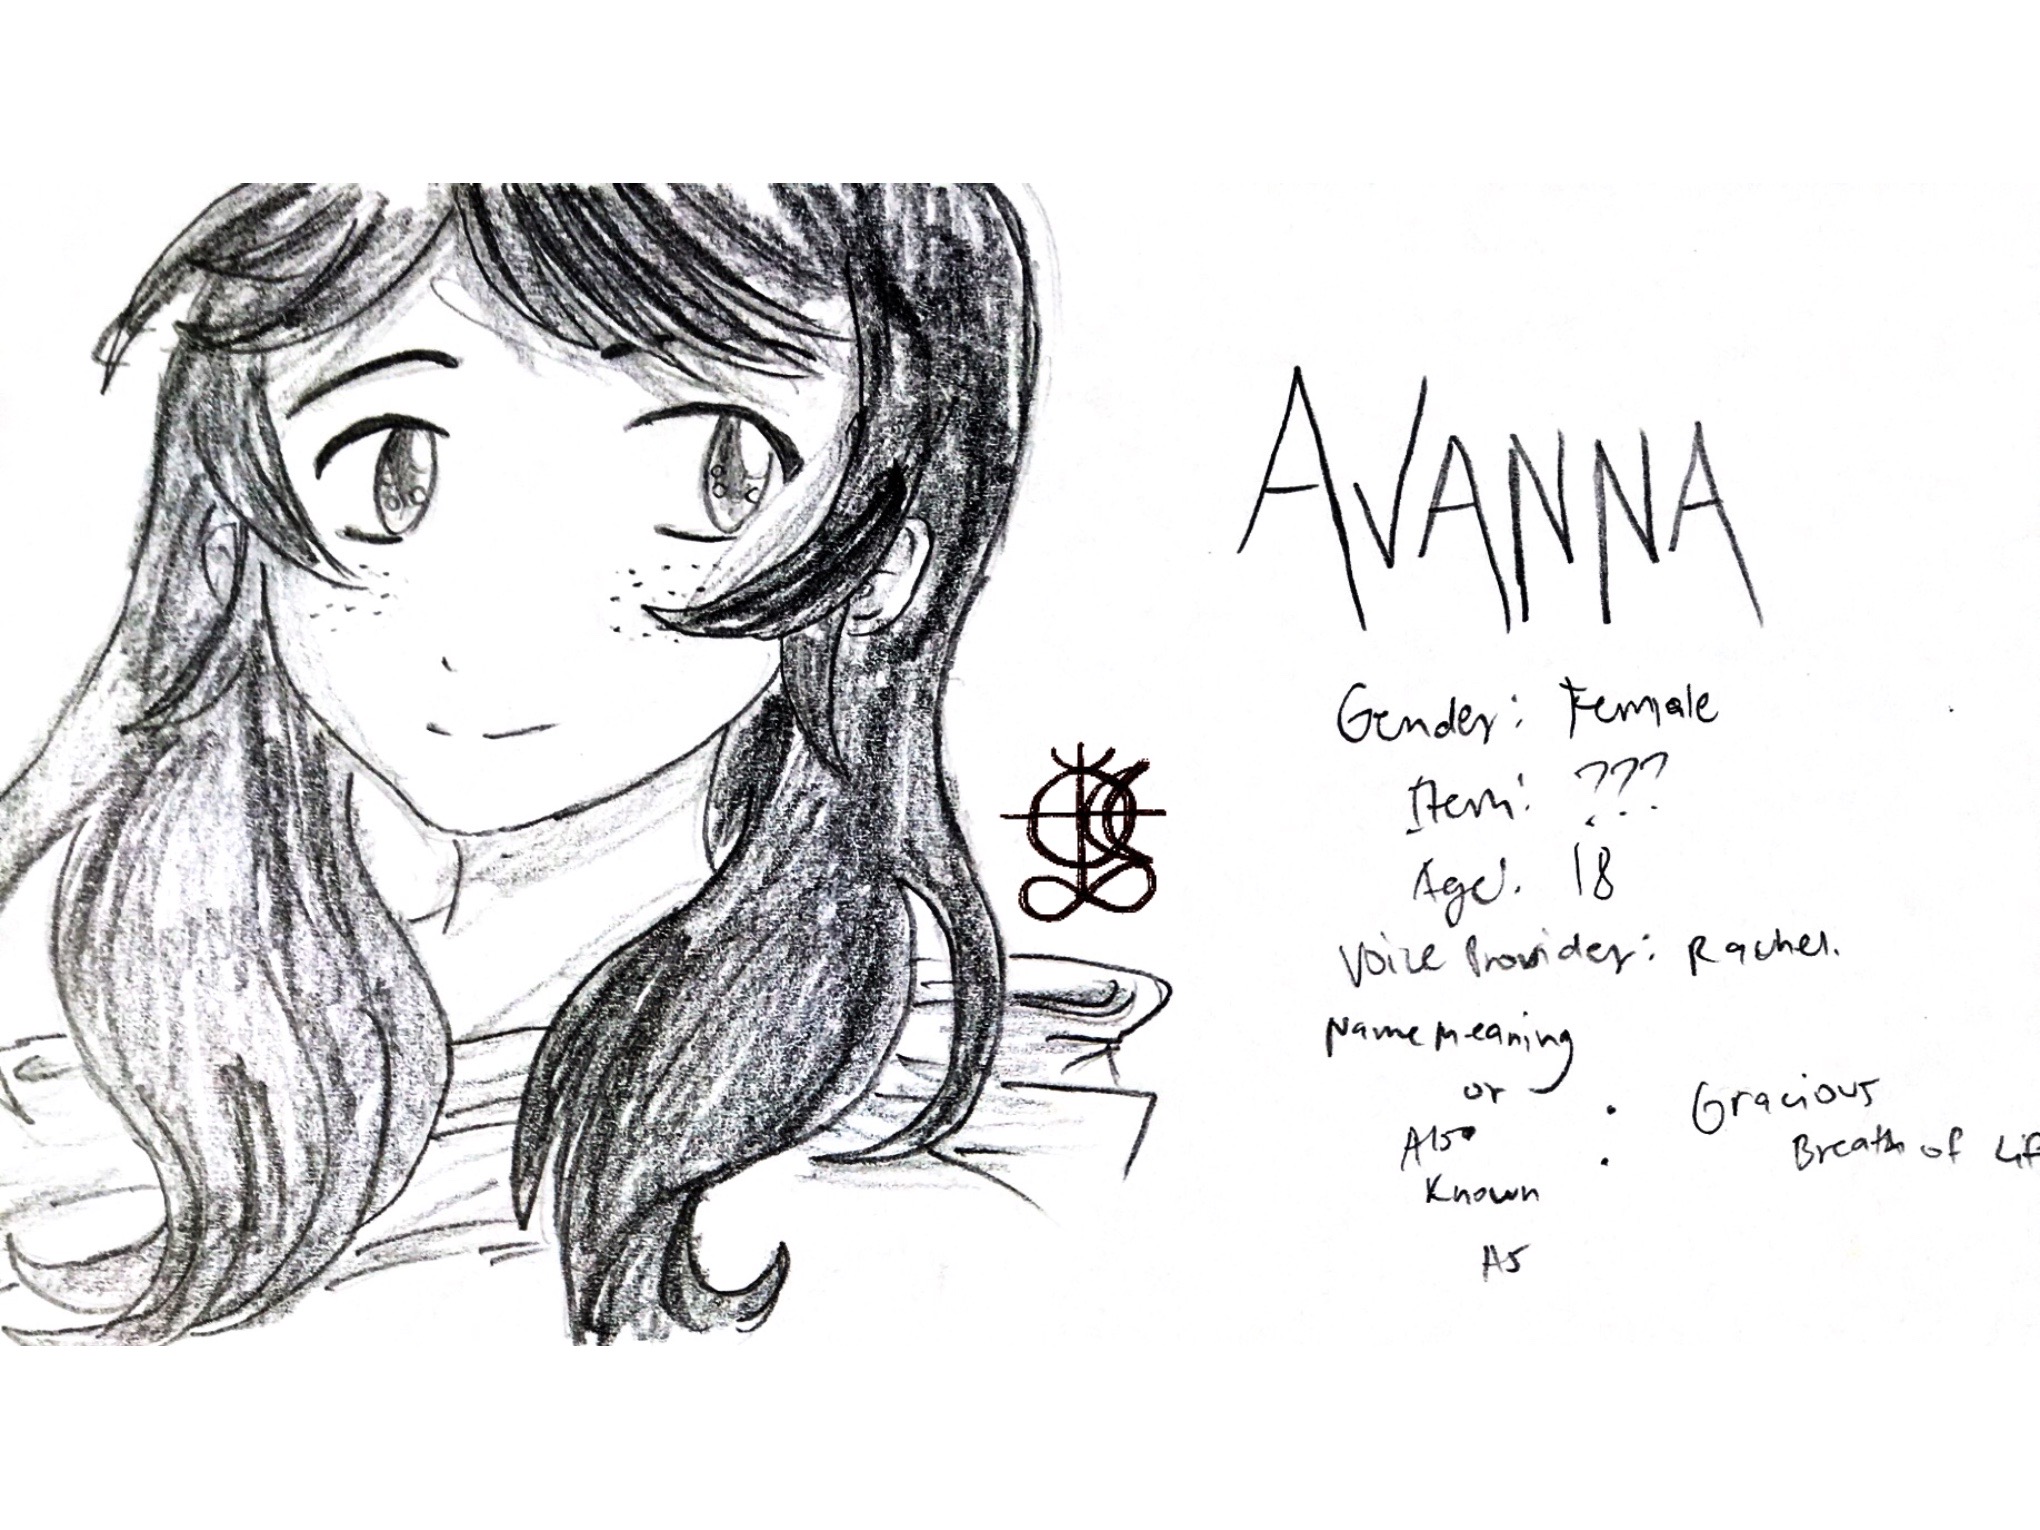 AVANNA
Gender: Female
Item: ???
Age: 18
Voice Provider: Rachel.
Name Meaning
or
Also
Known
As
: Gracious
: Breath of Lif